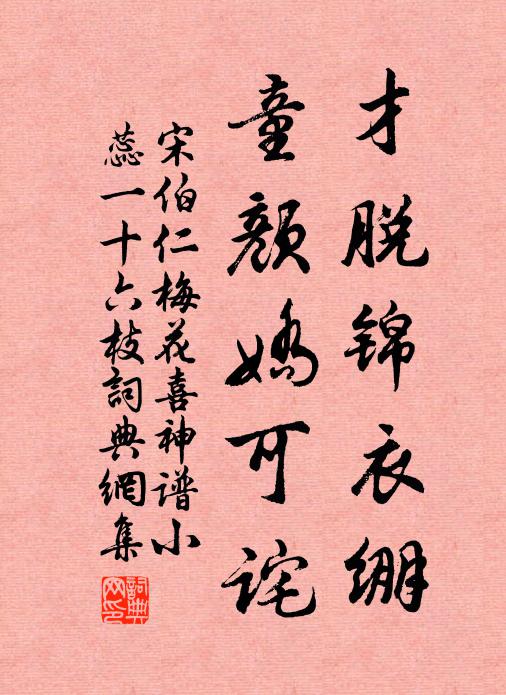 才脱锦衣绷
童颜娇可诧
宋伯仁梅花喜神谱小
蕊一十六枝词典網集
詞典網印